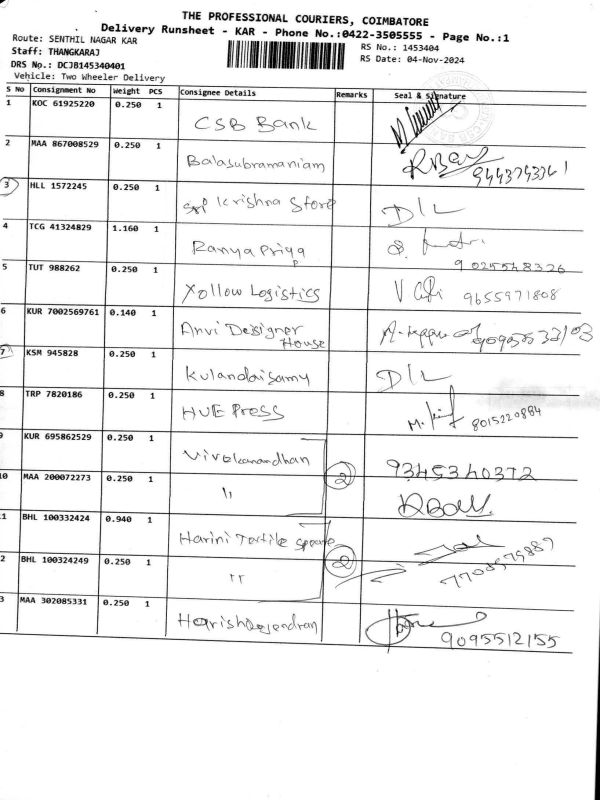 THE PROFESSIONAL COURIERS, COIMBATORE
Delivery Runsheet - KAR - Phone No.:0422-3505555 - Page No.:1
Route: SENTHIL NAGAR KAR
RS No.: 1453404
Staff: THANGKARAJ
RS Date: 04-Nov-2024
DRS No.: DCJB145340401
Vehicle: Two Wheeler Delivery
S No Consignment No Weight PCS Consignee Details Remarks Seal & Signature
1 KOC 61925220 0.250 1 CSB Bank
2 MAA 867008529 0.250 1 Balasubramaniam
3 HLL 1572245 0.250 1 Sri Krishna Store D/L
4 TCG 41324829 1.160 1 Ranya Priya
9025548326
5 TUT 988262 0.250 1 Xollow Logistics 9655971808
6 KUR 7002569761 0.140 1 Anvi Designer
House
7 KSM 945828 0.250 1 Kulandaisamy D/L
8 TRP 7820186 0.250 1 HUE Press 8015220884
9 KUR 695862529 0.250 1 Vivekanandhan 9345340372
2
10 MAA 200072273 0.250 1 "
11 BHL 100332424 0.940 1 Harini Textile
2
12 BHL 100324249 0.250 1 "
13 MAA 302085331 0.250 1 Harish Rajendran 9095512155